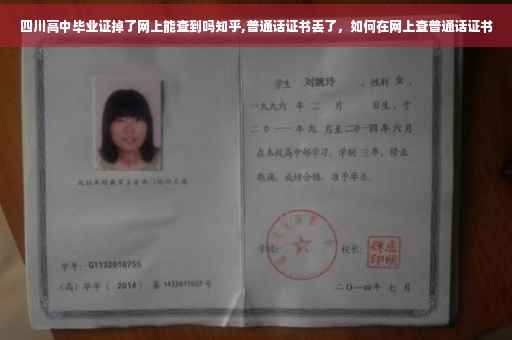 四川高中毕业证掉了网上能查到吗知乎,普通话证书丢了，如何在网上查普通话证书
学生 刘婉玲 ，性别 女 ，
一九九六 年 二 月 日生，于
二〇一一年 九 月至二〇一四年 六 月
在本校高中部学习，学制 三年，修业
期满，成绩合格，准予毕业。
学号： G1132010755
学校： 校长：
(高) 毕字 ( 2014 ) 第 1432011027 号
二〇一四年 七 月